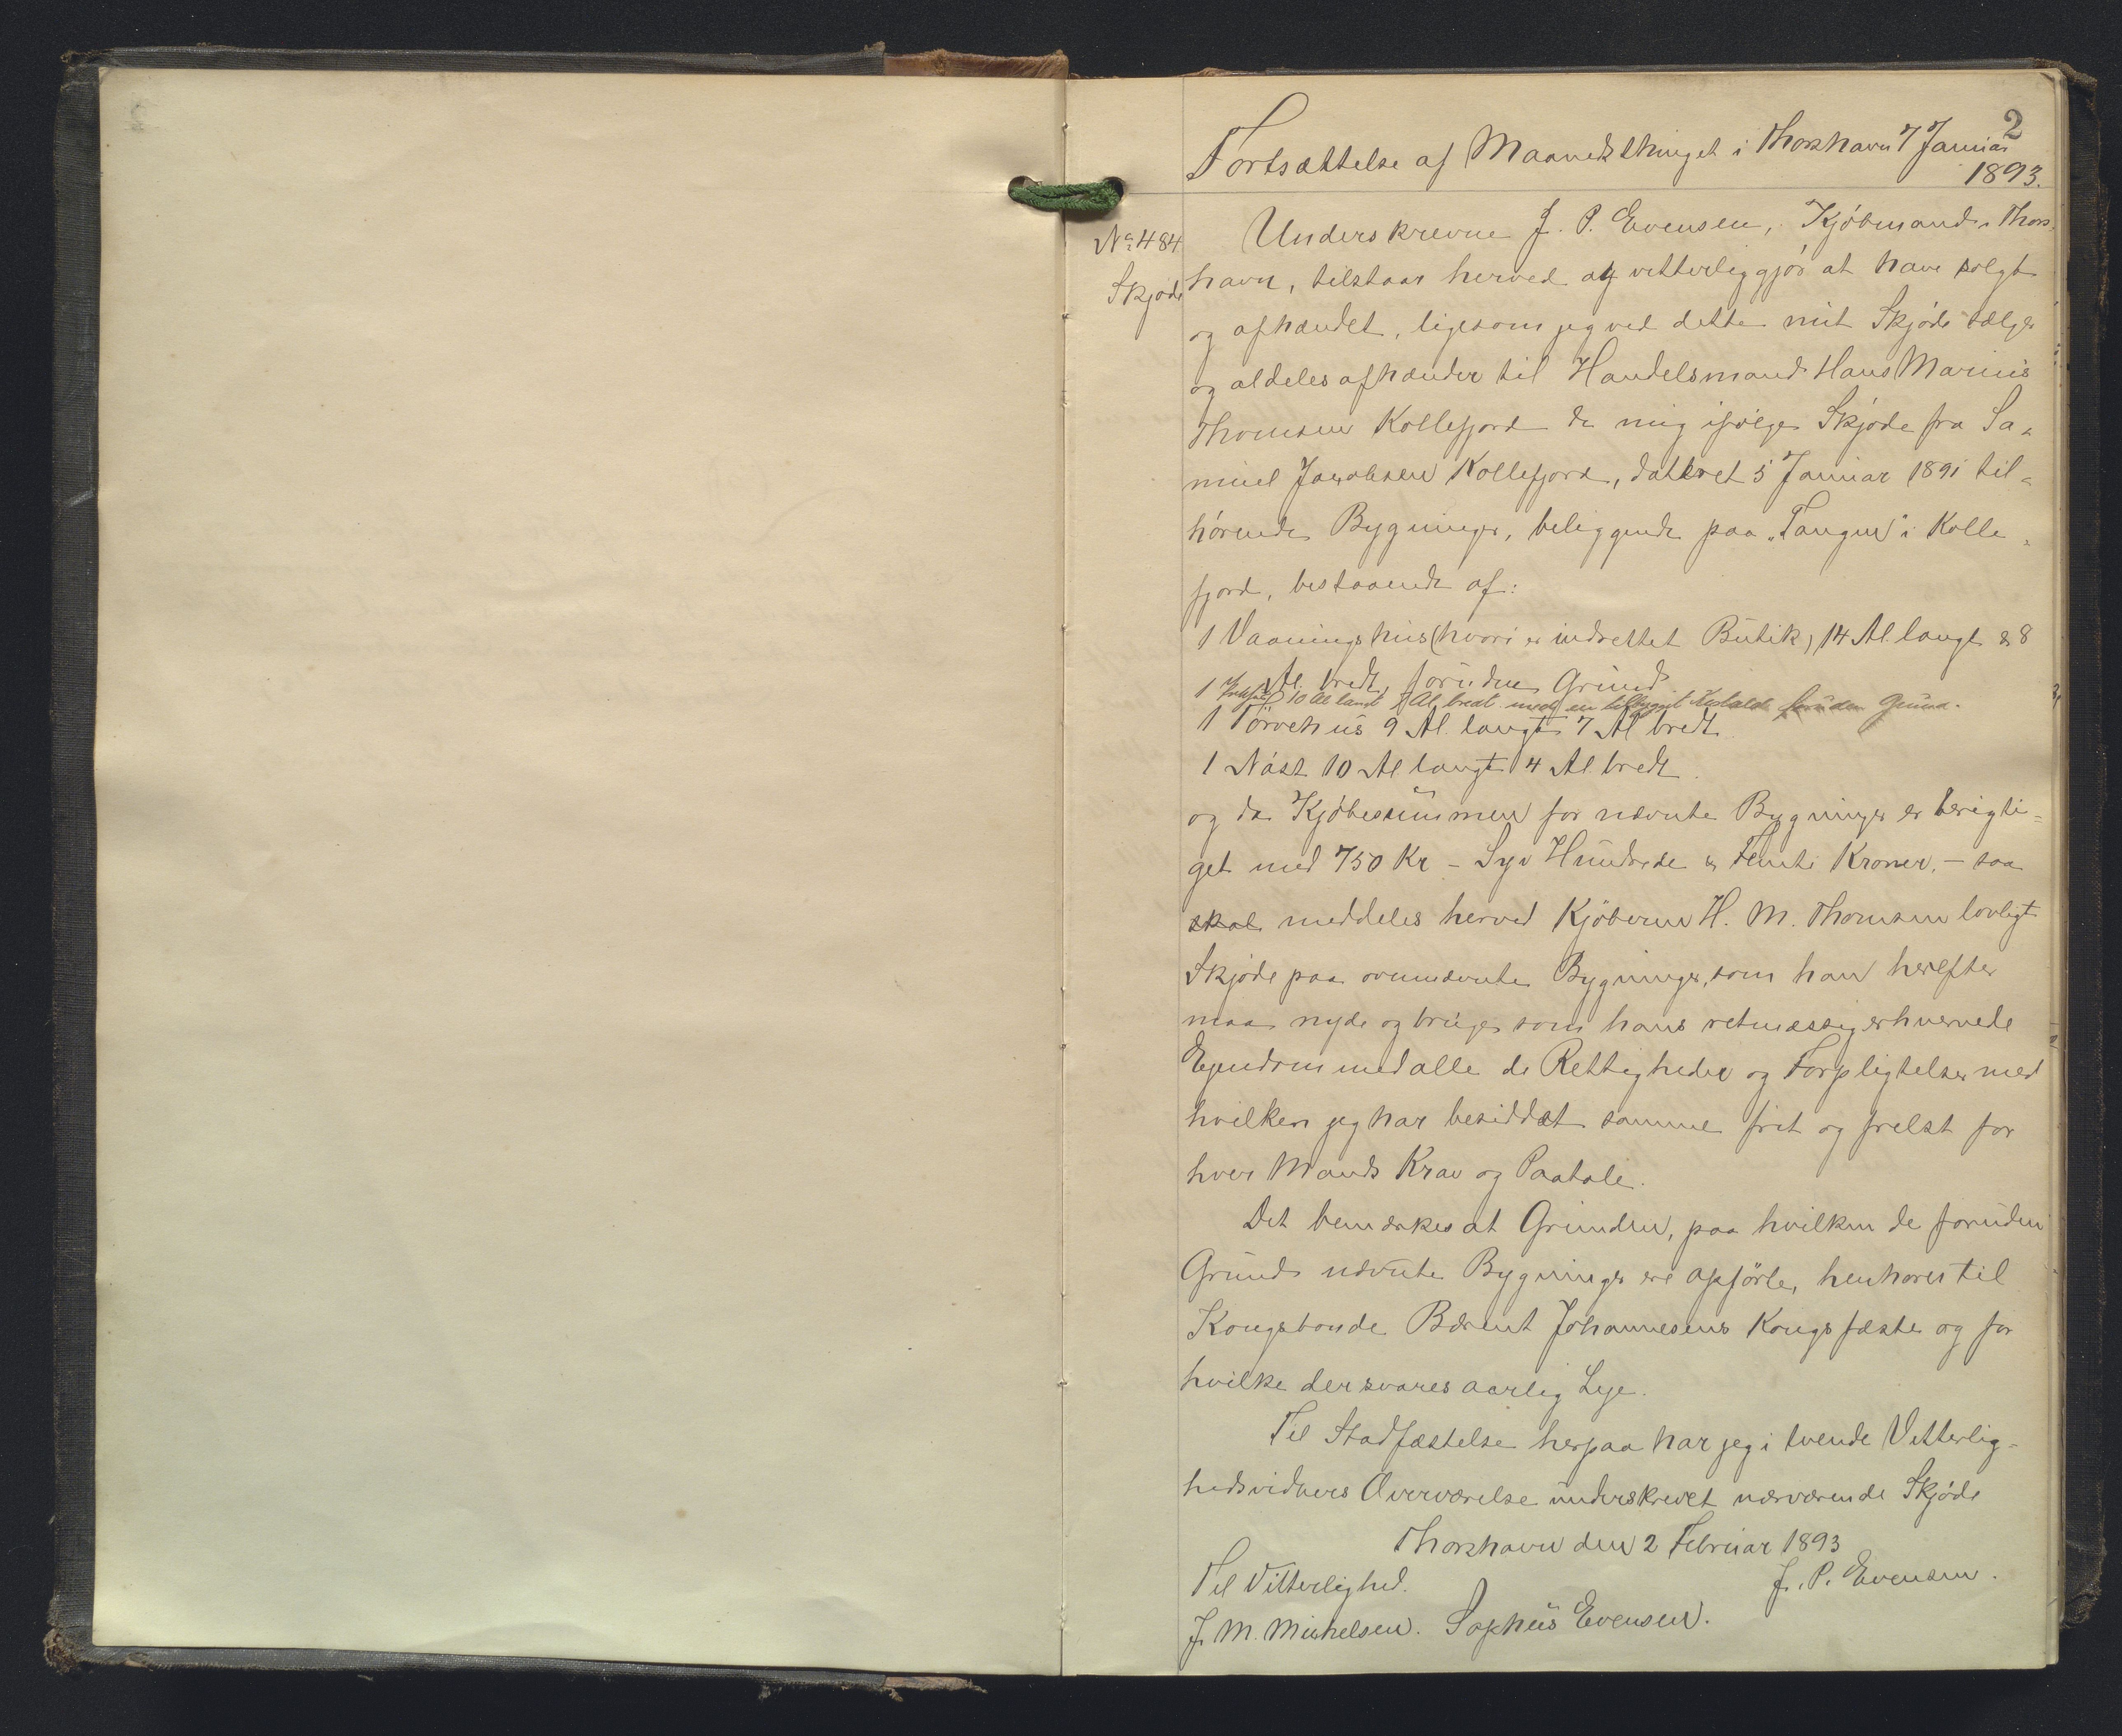 2
Fortsættelse af Maanedsthinget i Thorshavn 7 Januar
1893.
No 484
Skjøde
Underskrevne J. P. Evensen, Kjøbmand i Thors-
havn, tilstaar herved og vitterliggjør at have solgt
og afhændet, ligesom jeg ved dette mit Skjøde sælger
og aldeles afhænder til Handelsmand Hans Marius
Thomsen Kollefjord de mig ifølge Skjøde fra Sa-
muel Jacobsen Kollefjord, dateret 5 Januar 1891 til-
hørende Bygninger, beliggende paa „Tangen" i Kolle-
fjord, bestaaende af:
1 Vaaningshus (hvori er indrettet Butik) 14 Al. langt & 8
Al. bredt, foruden Grund.
1 10 Al langt 7 Al. bredt med en tilbygget Kostald foruden Grund.
1 Tørvehus 9 Al. langt 7 Al bredt.
1 Nøst 10 Al langt 4 Al bredt.
og da Kjøbesummen for nævnte Bygninger er berigti-
get med 750 Kr - Syv Hundrede & Femti Kroner, - saa
skal meddeles herved Kjøberen H. M. Thomsen lovligt
Skjøde paa ovennævnte Bygninger, som han herefter
maa nyde og bruge som hans retmæssig erhvervede
Ejendom med alle de Rettigheder og Forpligtelser med
hvilken jeg har besiddet samme frit og frelst for
hver Mands Krav og Paatale.
Det bemærkes at Grunden, paa hvilken de foruden
Grund nævnte Bygninger ere opførte, henhører til
Kongsbonde Bærent Johannesens Kongsfæste og for
hvilke der svares aarlig Leje.
Til Stadfæstelse herpaa har jeg i tvende Vitterlig-
hedsvidners Overværelse underskrevet nærværende Skjøde
Thorshavn den 2 Februar 1893
Til Vitterlighed.
J. P. Evensen.
J. M. Michelsen. Sophus Evensen.